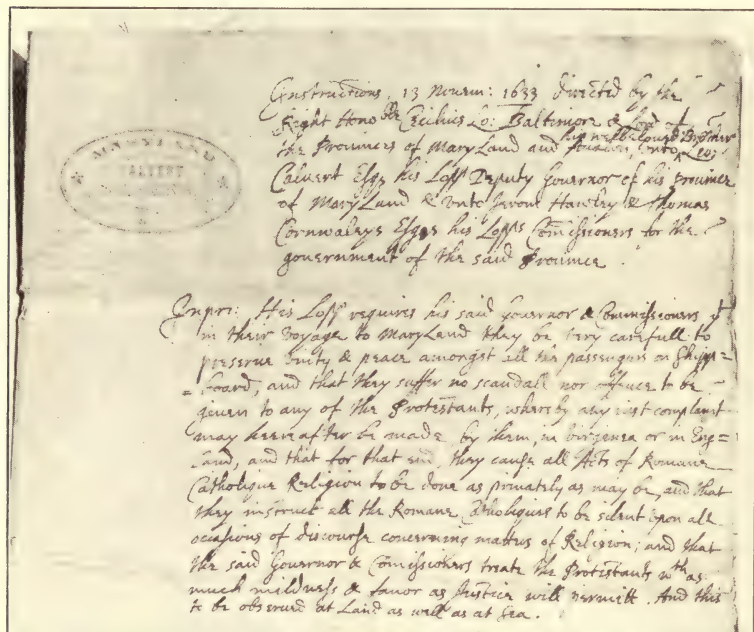 MARYLAND
CALVERT
Instructions, 13 Nouem: 1633 directed by the
Right Honoble Cecilius Lo: Baltimore & Lord of
the Provinces of Mary Land and Avalon, unto his well beloued Brother Leo:
Calvert Esqr his Lopps Deputy Governor of his Province
of Mary Land & vnto Jerom Hawley & Thomas
Cornwaleys Esqrs his Lopps Comissioners for the
government of the said Province.
Inpri: His Lopp requires his said Governor & Commissioners yt
in their voyage to Mary Land they be very carefull to
preserve vnity & peace amongst all the passengers on Shipp=
=board, and that they suffer no scandall nor offence to be
given to any of the Protestants, whereby any iust complaint
may heereafter be made, by them, in Virginea or in Eng=
land, and that for that end, they cause all Acts of Romane
Catholique Religion to be done as privately as may be, and that
they instruct all the Romane Catholiques to be silent vpon all
occasions of discourse concerning matters of Religion; and that
the said Governor & Comissioners treate the Protestants wth as
much mildness & favor as Justice will permitt. And this
to be observed at Land as well as at Sea.